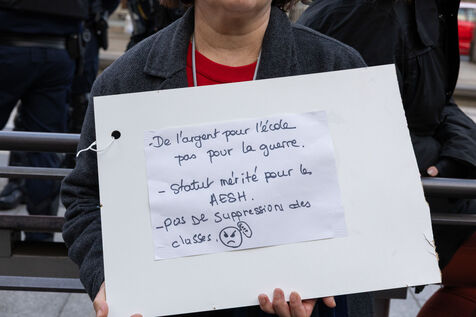 - De l'argent pour l'école
pas pour la guerre.
- statut mérité pour les
AESH.
- pas de suppression des
classes.